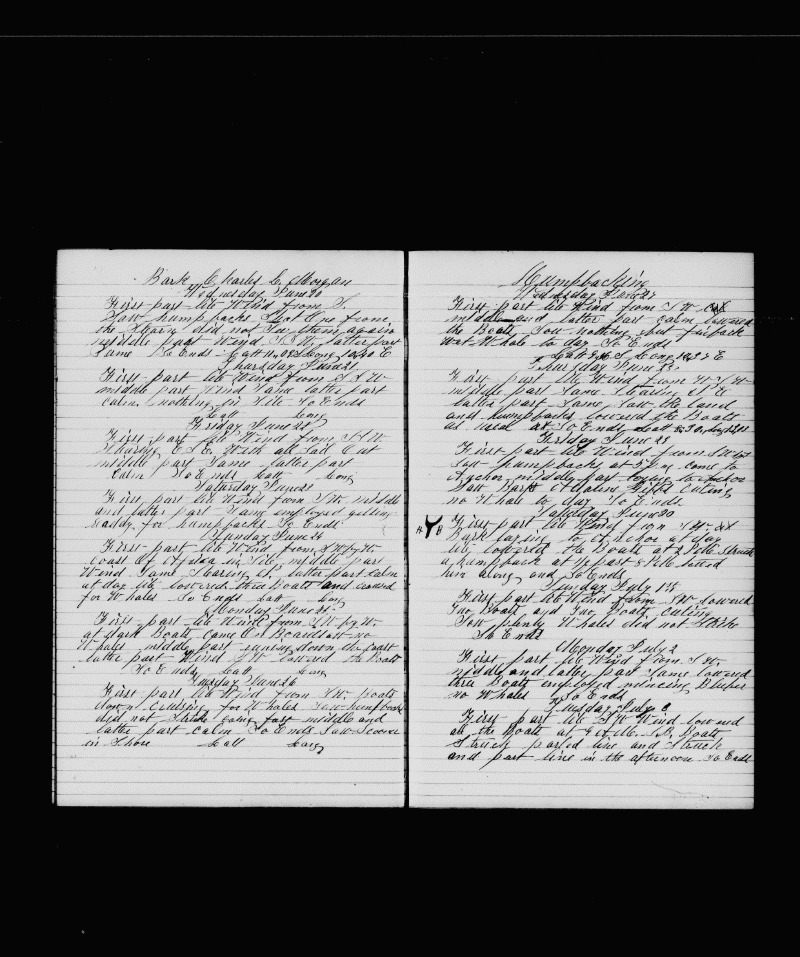 Bark Charles C. Morgan
Wednesday June 20
First part lite Wind from S.
Saw humpbacks Shot One from
the Starn did not See them again
middle part Wind S W. latter part
Same So Ends Latt Long E
Thursday June 21
First part lite Wind from S S W
middle part Wind Same latter part
calm nothing in Site So Ends
Latt Long
Friday June 22
First part lite Wind from S W
Stearing E S E With all Sail Out
middle part Same latter part
calm So Ends Latt Long
Saturday June 23
First part lite Wind from SW middle
and latter part Same employed getting
ready for humpbacks So Ends
Sunday June 24
First part lite Wind from SW by W
coast of Africa in Site, middle part
Wind Same Stearing latter part calm
at day lite lowered three Boats and cruised
for Whales So Ends Latt Long
Monday June 25
First part lite Wind from SW by W
at dark Boats came On Board Saw no
Whales middle part runing down the coast
latter part Wind SW lowered the Boats
So Ends Latt Long
Tuesday June 26
First part lite Wind from SW boats
down cruising for Whales Saw humpbacks
did not Strike going fast middle and
latter part calm So Ends Saw
in Shore Latt Long
Humpbacking
Wednesday June 27
First part lite Wind from S W
middle and latter part calm lowered
the Boats Saw nothing but finback
Whale to day So Ends
Latt S Long E
Thursday June 28
First part lite Wind from W S W
middle part Same Stearing
latter part Same Saw the land
and humpbacks lowered the Boats
at So Ends Latt Long
Friday June 29
First part lite Wind from
Saw humpbacks at 5 P M come to
Anchor middle part to Anchor
Saw Bark Cuting
no Whale to day So Ends
Saturday June 30
First part lite Wind from S W
Bark laying to Anchor at day
lite lowered the Boats at 2 P M Struck
a humpback at part 8 P M
him along and So Ends
Sunday July 1st
First part lite Wind from SW lowered
Two Boats and Two Boats Cuting
Saw plenty Whales did not Strike
So Ends
Monday July 2
First part lite Wind from S W
middle and latter part Same lowered
three Boats employed mincing Bluber
no Whales So Ends
Tuesday July 3
First part lite S W Wind lowered
all the Boats at A. M. Boats
Struck parted line and Struck
and part line in the afternoon So Ends